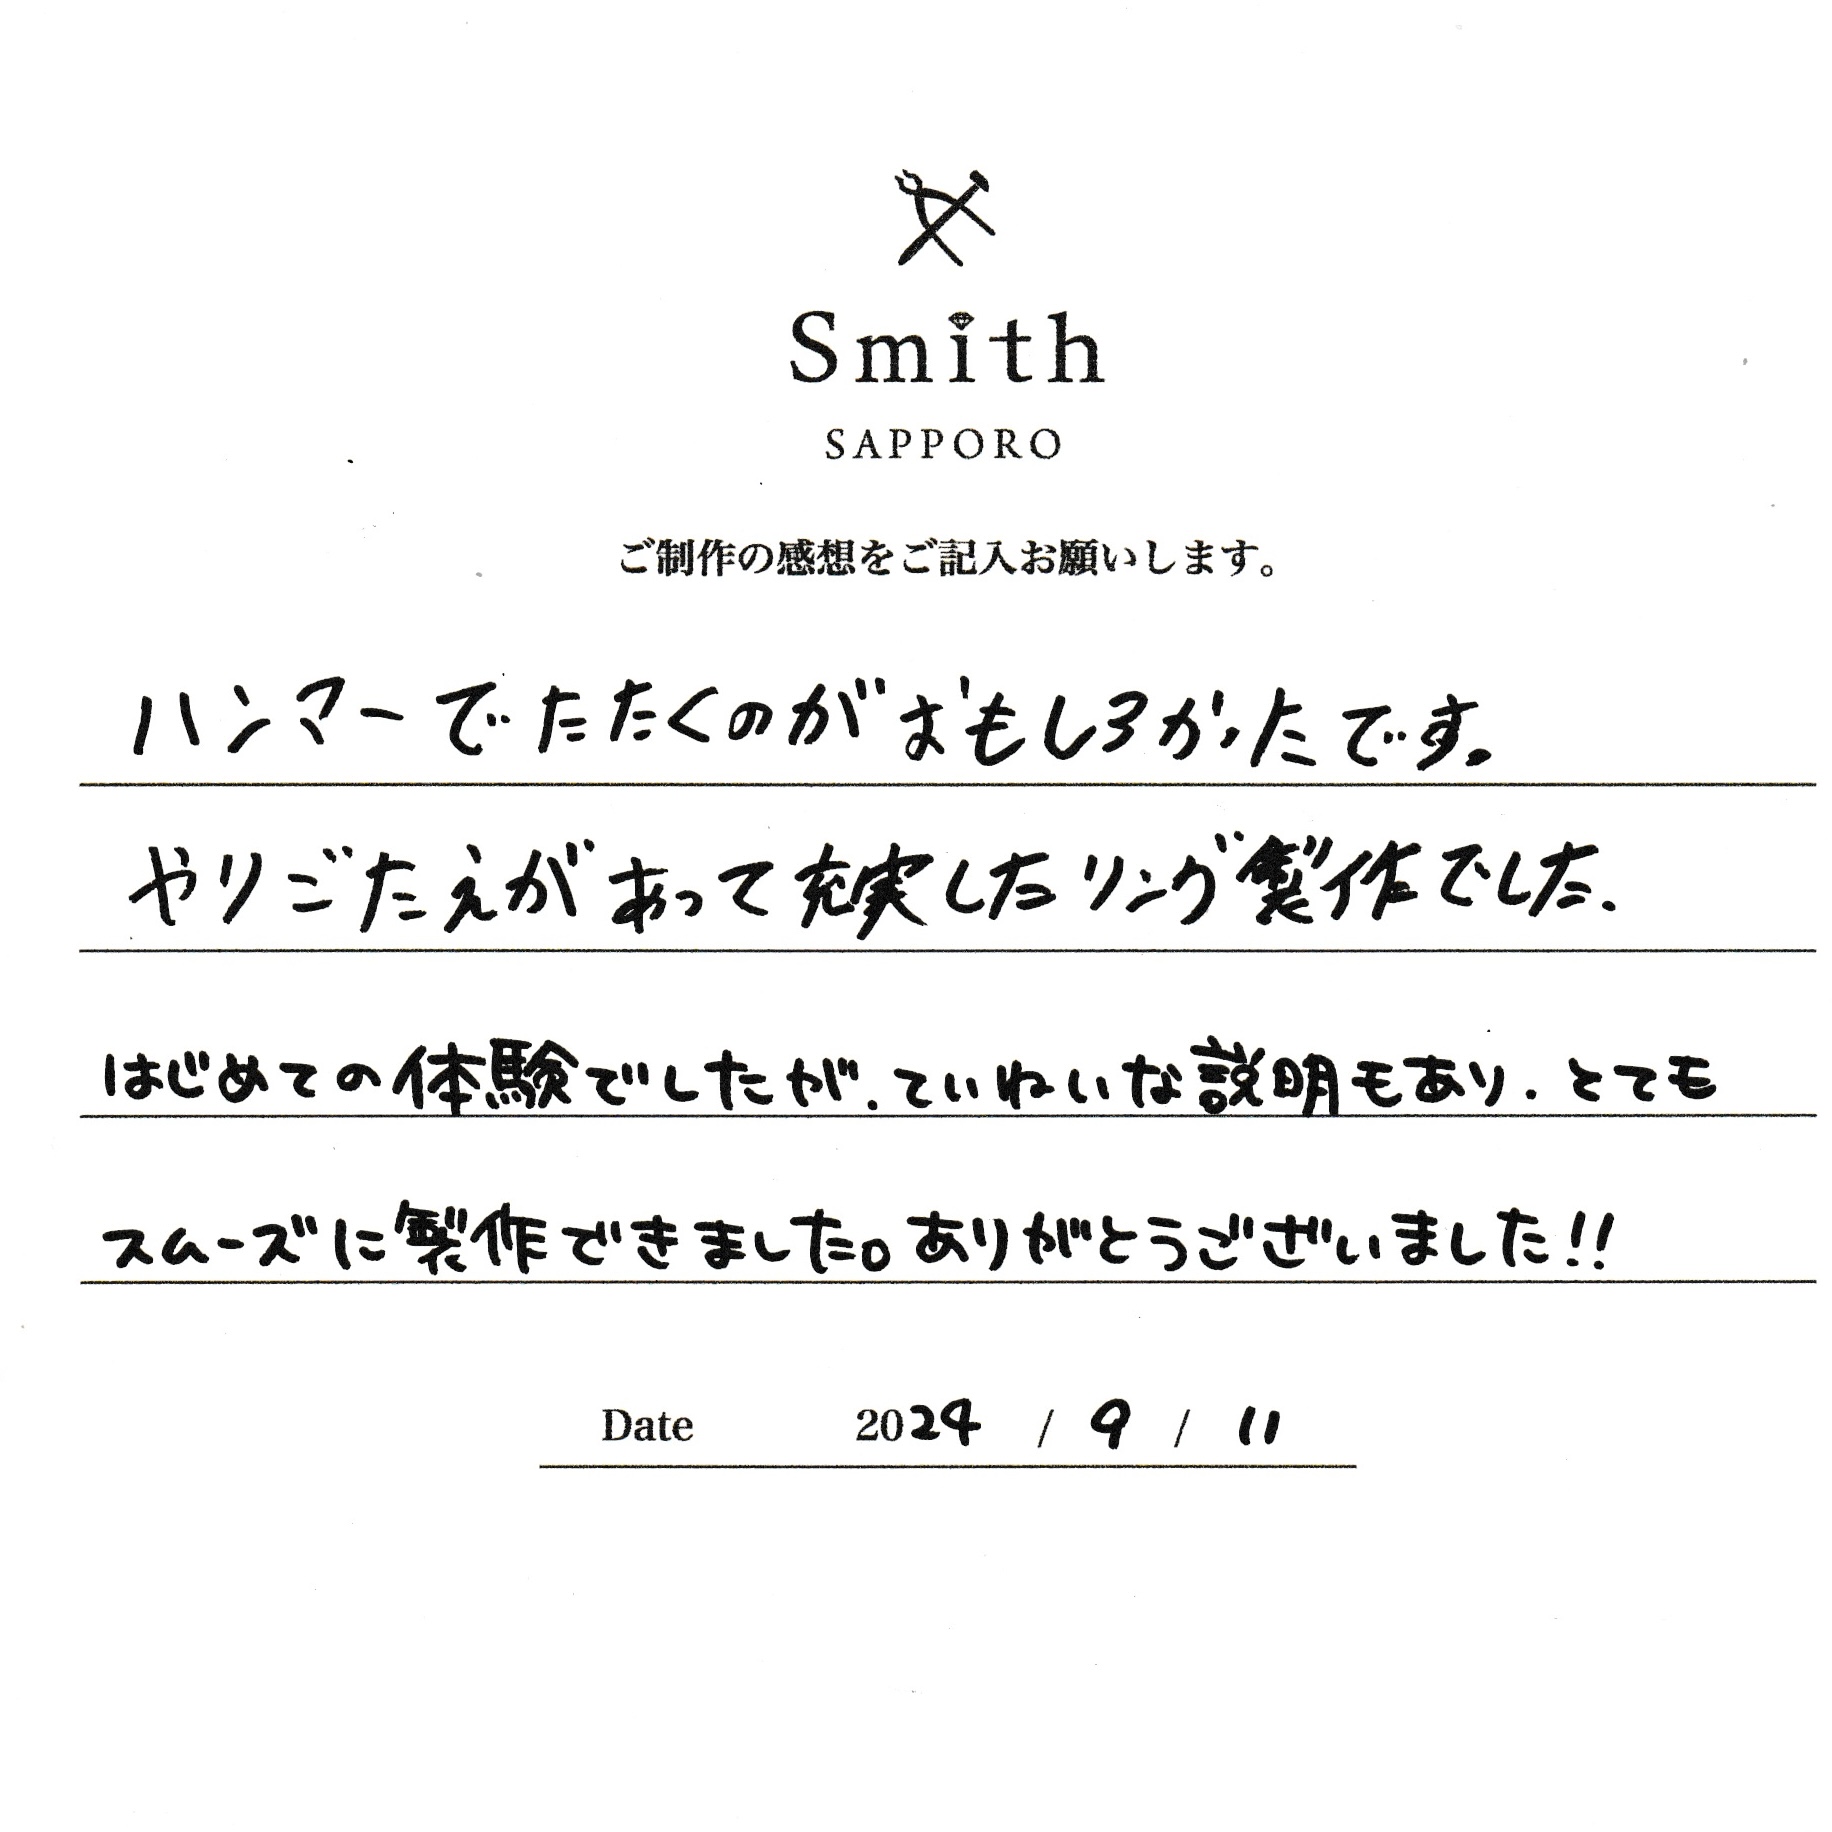 Smith
SAPPORO
ご制作の感想をご記入お願いします。
ハンマーでたたくのがおもしろかったです。
やりごたえがあって充実したリング製作でした.
はじめての体験でしたが、ていねいな説明もあり、とても
スムーズに製作できました。ありがとうございました!!
Date 2024 / 9 / 11